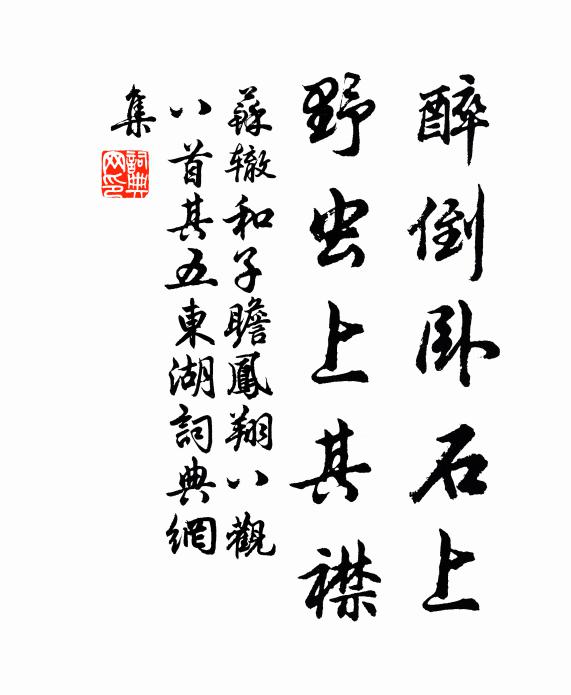 醉倒卧石上
野虫上其襟
蘇辙和子瞻鳳翔八觀
八首其五東湖詞典網
集
詞典
网印